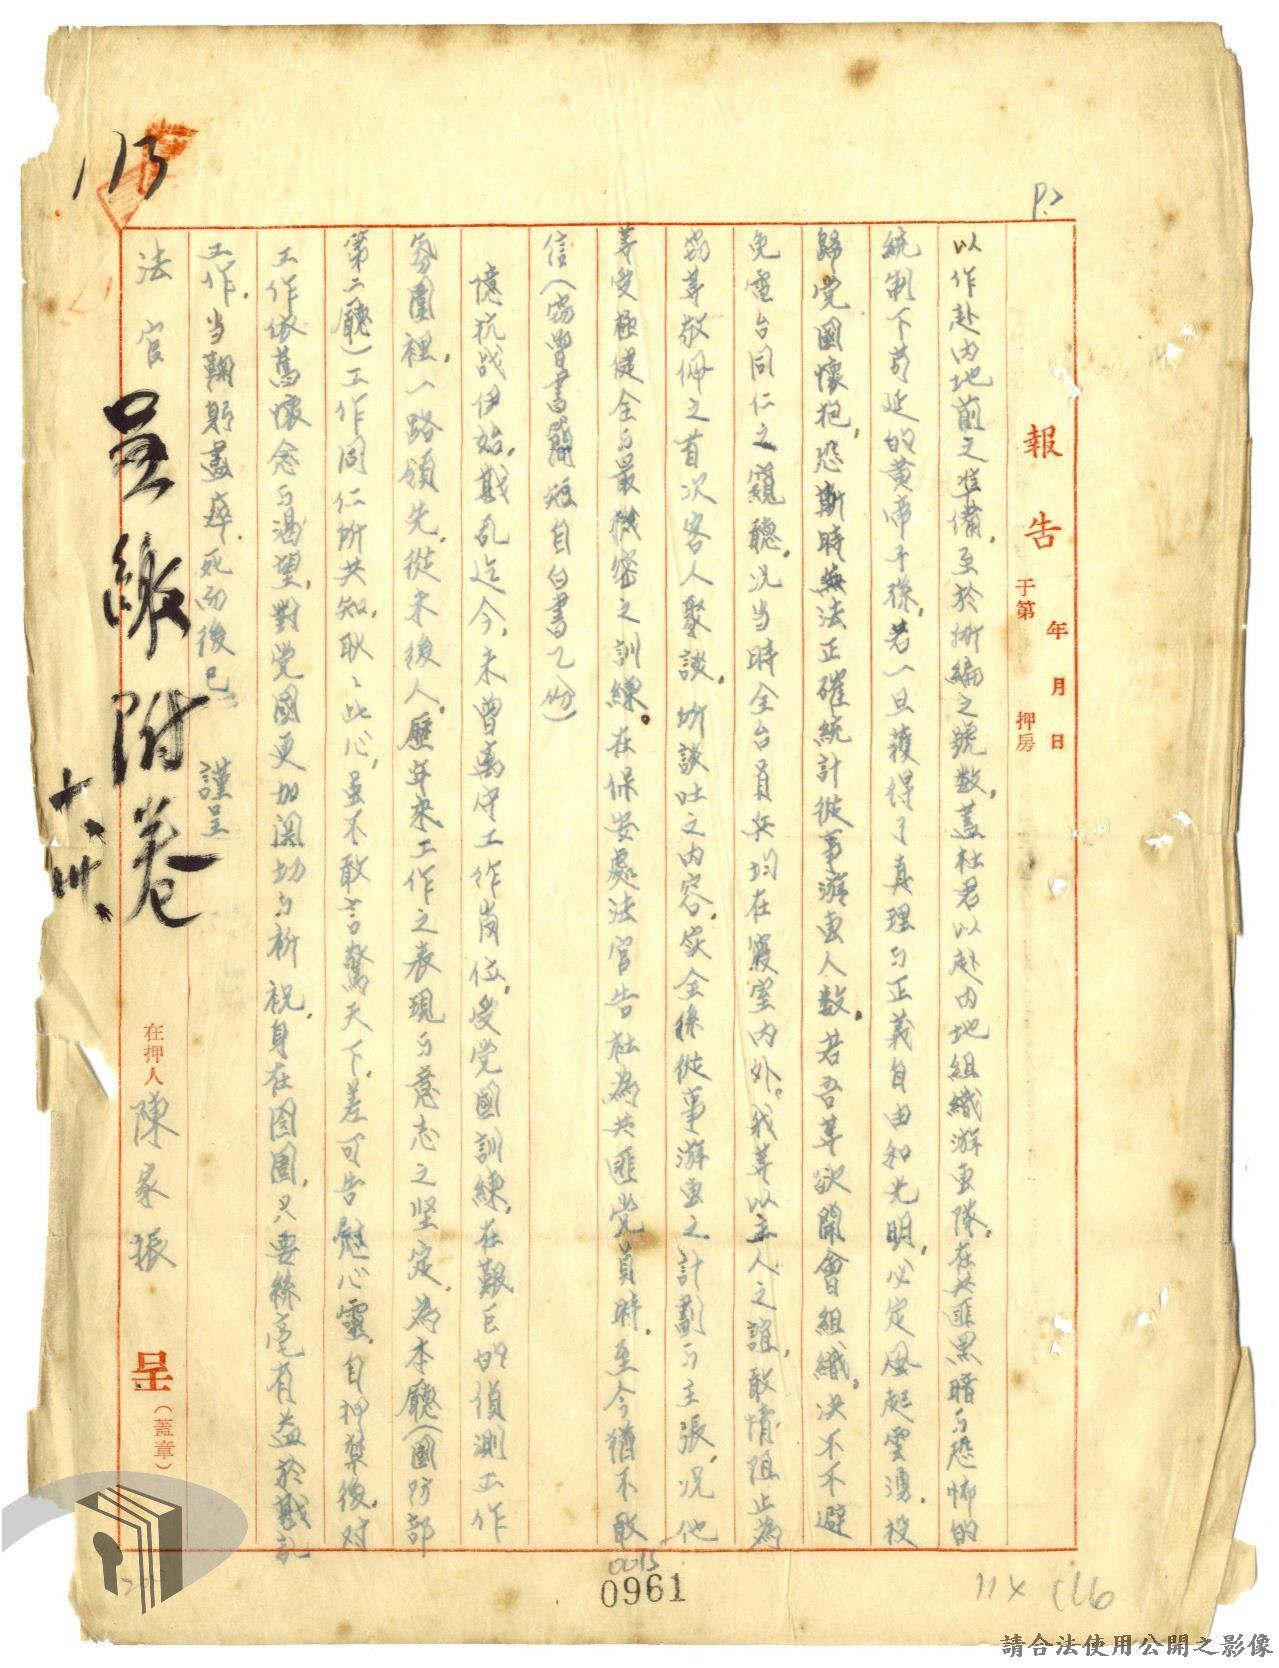 P.2
報告
年 月 日
于第 押房
以作赴內地前之準備,至於所編之號数,蓋杜君以赴內地組織游击隊,在共匪黑暗与恐怖的
統制下苟延的黄帝子孫,若一旦獲得了真理与正義自由和光明,必定風起雲湧,投
歸党國懷抱,恐斯時無法正確統計從事游击人数。若吾等欲開會組織,決不不避
免電台同仁之窺聽,況当時全台員兵均在寢室内外。我等以主人之誼,敢情阻止為
吾等敬佩之首次客人聚談,所談吐之内容,完全係從事游击之計劃与主張,况他
等受極健全与最機密之訓練。在保安處法官告杜為共匪党員時,至今猶不敢
信(協曾書簡短自白書乙份)
憶抗战伊始,戡乱迄今,未曾离守工作岗位,受党國訓練,在艱巨的偵測工作
氛圍裡,一路領先,從未後人。歷年來工作之表現与意志之坚定,為本廳(國防部
第二廳)工作同仁所共知,耿〻此心,虽不敢言驚天下,差可告慰心靈,自押禁後,对
工作依舊懷念与渴望,對党國更加関切与祈祝,身在囹圄,只要絲毫有益於戡乱
工作,当鞠躬盡瘁,死而後已 謹呈
法官
在押人 陳家振 呈(蓋章)
呈繳附卷
十、卅、
113
0015
0961
11X 116
請合法使用公開之影像